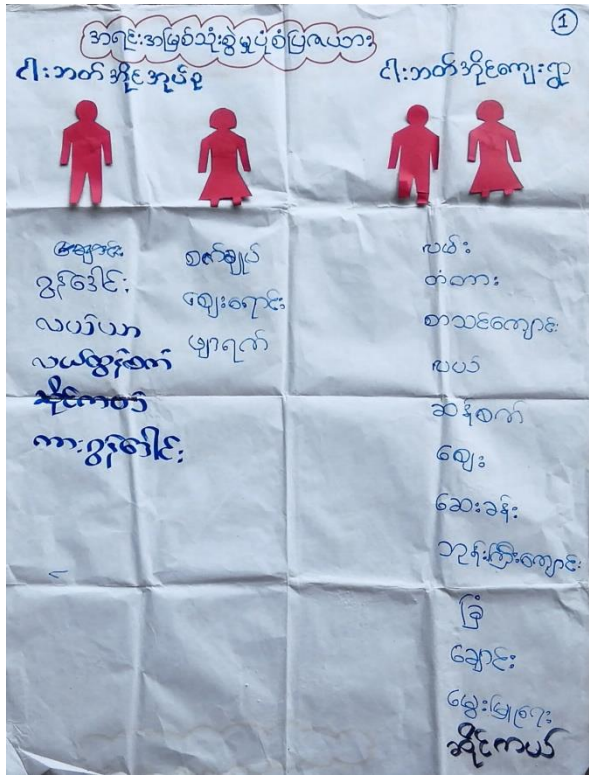 ①
အရင်းအမြစ်သုံးစွဲမှုပုံစံပြဇယား
ငါးဘတ်အိုင်အုပ်စု
ငါးဘတ်အိုင်ကျေးရွာ
ဂွန်ဒေါင်း
လယ်ယာ
လယ်ထွန်စက်
ဆိုင်ကယ်
ကားဂွန်ဒေါင်း
စက်ချုပ်
ဈေးရောင်း
ဖျာရက်
လမ်း
တံတား
စာသင်ကျောင်း
လယ်
ဆန်စက်
ဈေး
ဆေးခန်း
ဘုန်းကြီးကျောင်း
ခြံ
ချောင်း
မွေးမြူရေး
ဆိုင်ကယ်